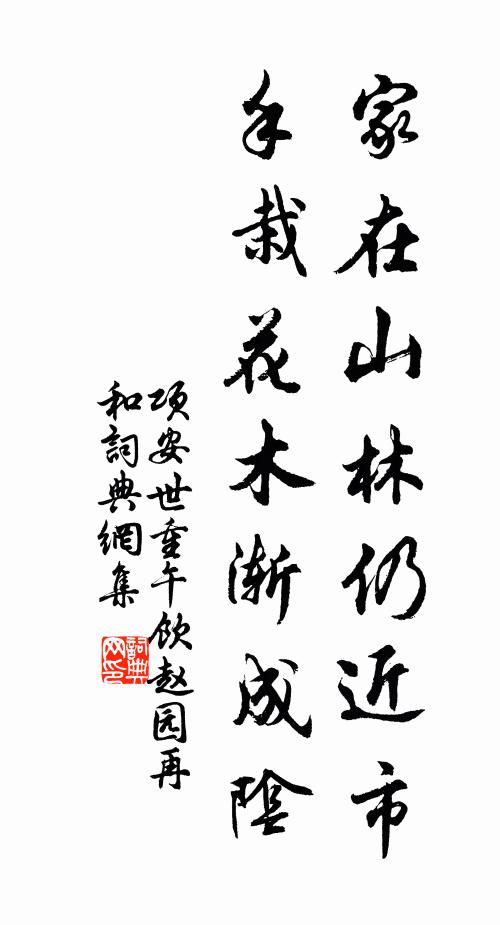 家在山林仍近市
手栽花木渐成陰
项安世重午饮赵园再
和詞典網集
詞典网印